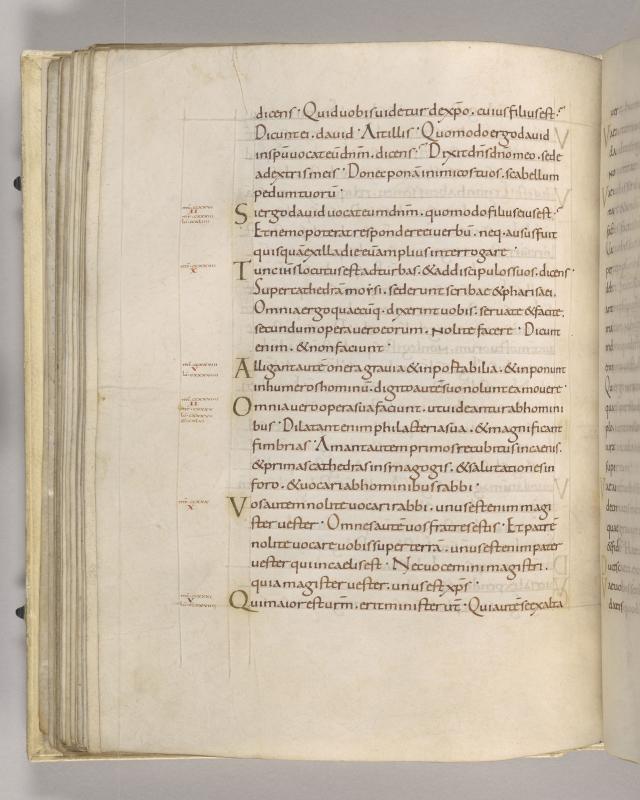 dicens · Quid uobis uidetur dexp̄o, cuius filius est ·
Dicunt ei · dauid · Ait illis · Quomodo ergo dauid
in sp̄u uocat eū dn̄m · dicens · Dixit dn̄s dno meo · sede
ad extris meis · Donec ponā inimicos tuos · scabellum
pedum tuorū ·
Si ergo dauid uocat eum dn̄m · quomodo filius eius est ·
Et nemo poterat respondere ei uerbū · neq · ausus fuit
quisquā ex illa die eū amplius interrogare ·
Tunc ih̄s locutus est ad turbas · & ad discipulos suos · dicens
Super cathedrā moysi · sederunt scribae & pharisaei ·
Omnia ergo quaecūq · dixerint uobis · seruate & facite ·
secundum opera uero eorum · nolite facere · Dicunt
enim · & non faciunt ·
Alligant autē onera grauia & inportabilia · & inponunt
in humeros hominū · digito autē suo nolunt ea mouere ·
Omnia uero opera sua faciunt · ut uideantur ab homini
bus · Dilatant enim philacteria sua · & magnificant
fimbrias · Amant autem primos recubitus in caenis ·
& primas cathedras in synagogis · & salutationes in
foro · & uocari ab hominibus rabbi ·
Vos autem nolite uocari rabbi · unus est enim magi
ster uester · Omnes autē uos fratres estis · Et patrē
nolite uocare uobis super terrā · unus est enim pater
uester qui in caelis est · Nec uocemini magistri ·
quia magister uester · unus est xp̄s ·
Qui maior est urm̄ · erit minister ur̄ · Qui autē se exalta